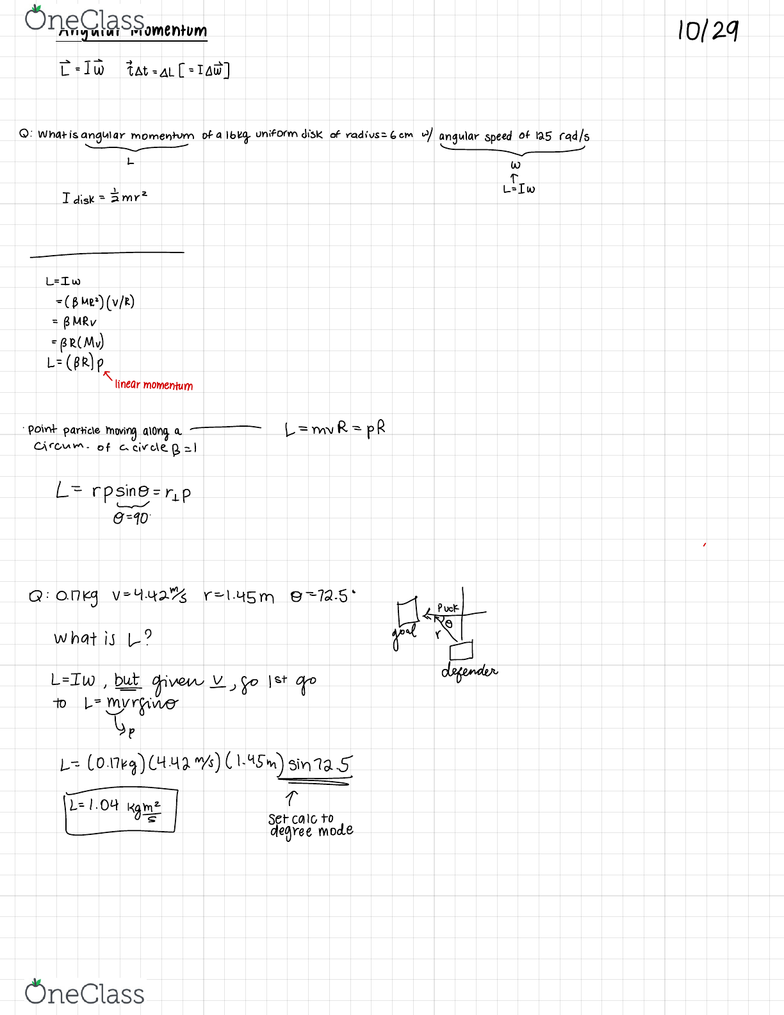 OneClass
Angular Momentum
10/29
L⃗ = Iω⃗ τ⃗Δt = ΔL [= IΔω⃗]
Q: What is angular momentum of a 16kg uniform disk of radius = 6cm w/ angular speed of 125 rad/s
L
ω
↑
L=Iω
I disk = ½mr²
L=Iω
=(βMR²)(v/R)
= βMRv
= βR(Mv)
L=(βR)p
linear momentum
· point particle moving along a
circum. of a circle β=1
L=mvR=pR
L= rpsinθ=r⊥p
θ=90°
Q: 0.17kg v=4.42 m/s r=1.45m θ=72.5°
Puck
θ
goal
r
defender
what is L?
L=Iω, but given v, so 1st go
to L= mvrsinθ
↳p
L= (0.17kg)(4.42 m/s)(1.45m) sin72.5
L=1.04 kgm²/s
↑
set calc to
degree mode
OneClass